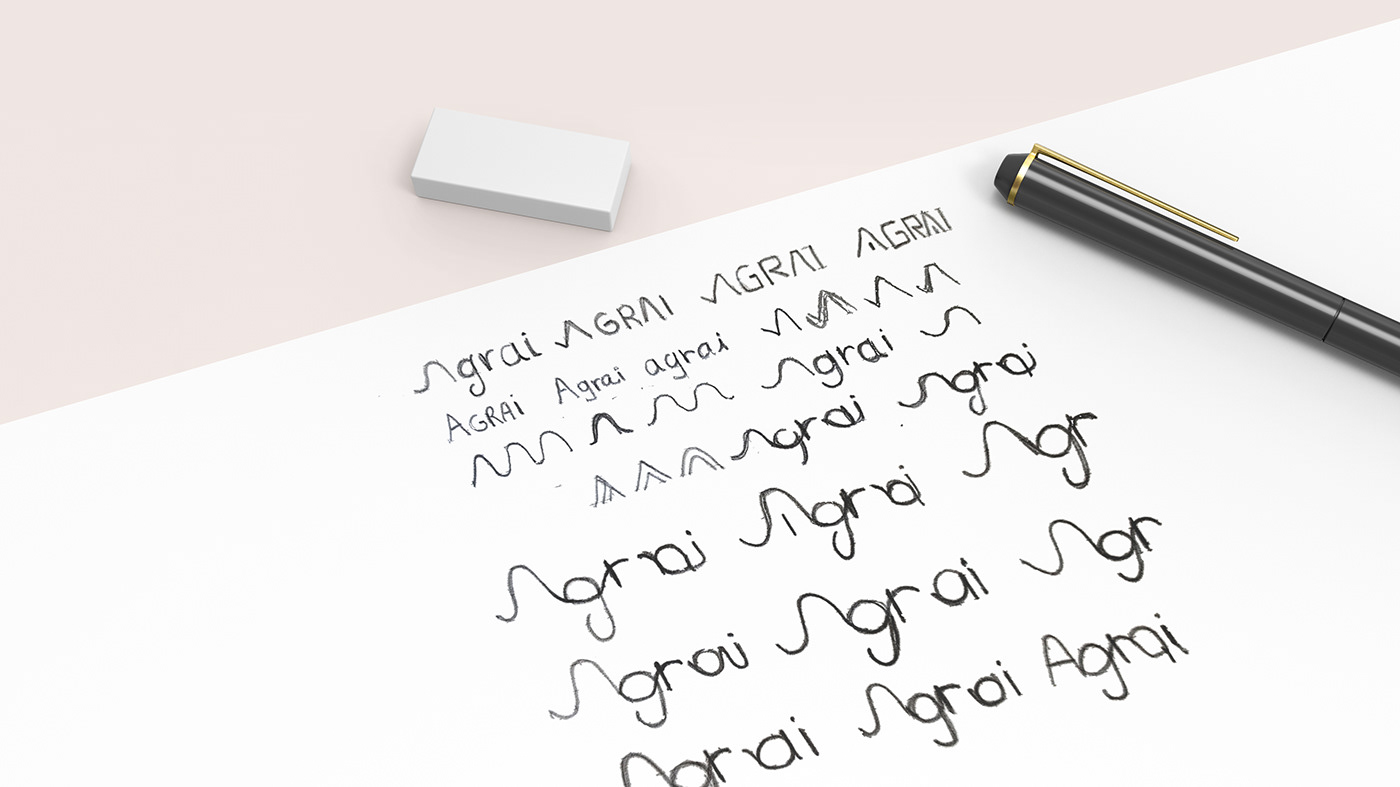 Agrai AGRAI AGRAI AGRAI
AGRAi Agrai agrai
Agrai
Agrai Agrai
Agrai Agrai Agr
Agrai Agrai Agr
Agrai Agrai Agrai